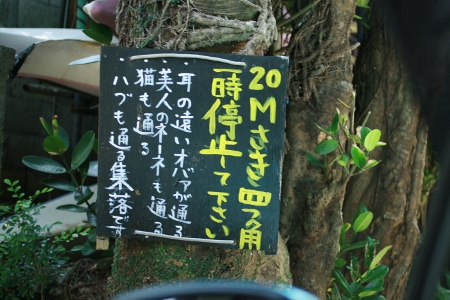 20Mさき四ツ角
一時停止して下さい
・耳の遠いオバァが通る
・美人のネーネも通る
・猫も通る
・ハブも通る集落です